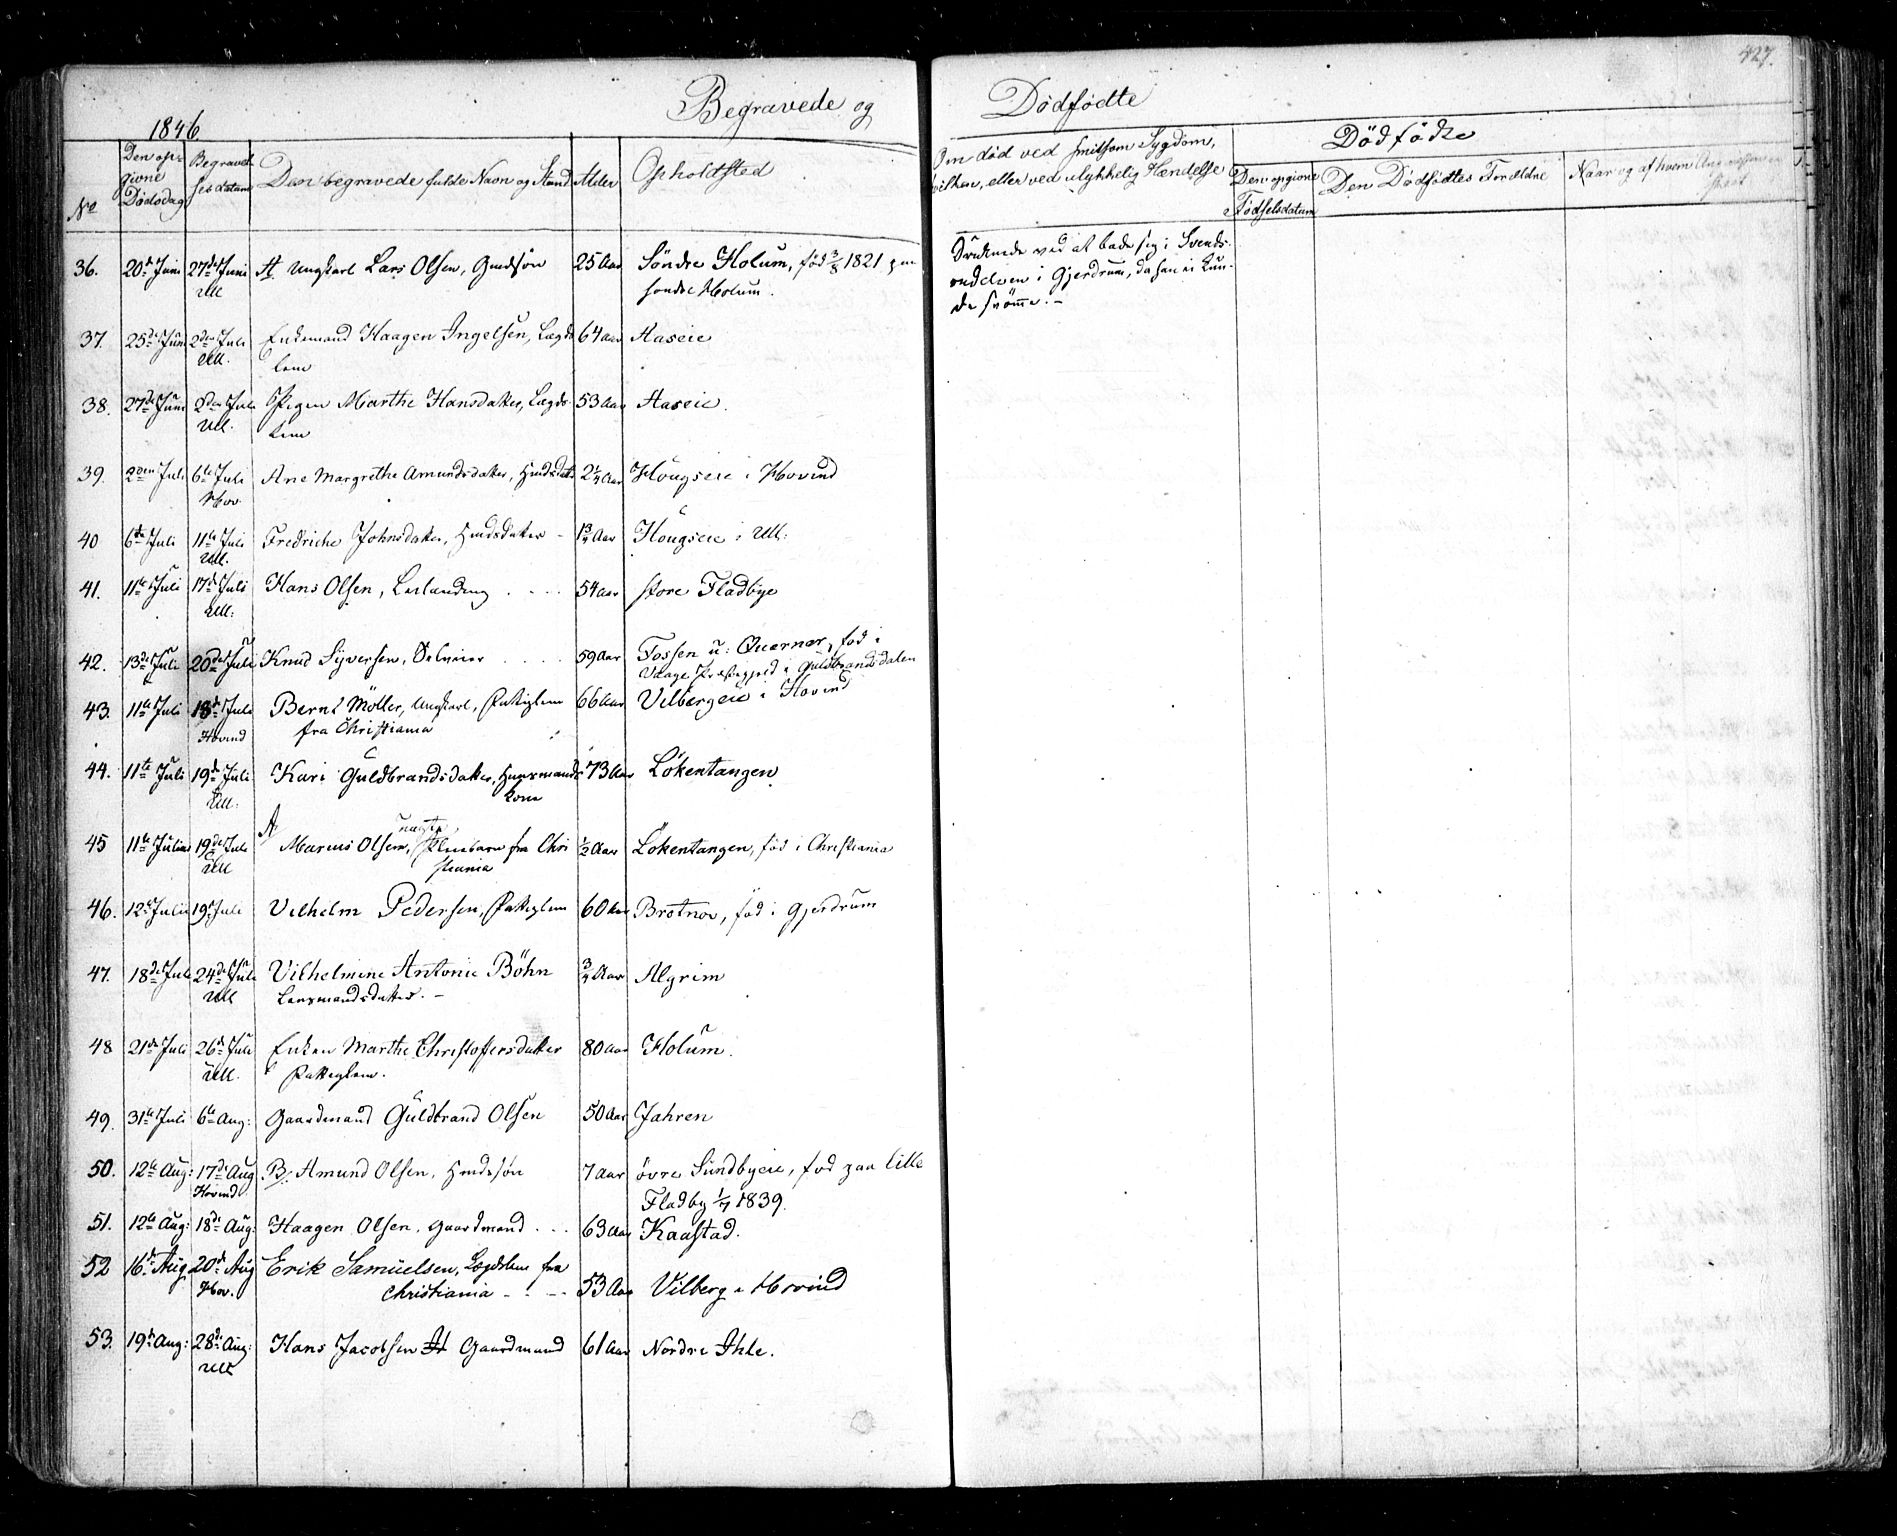 427.
1846.
Begravede og Dødfødte
No
Den op-
givne
Dødsdag
Begravel-
sesdatum
Den begravedes fulde Navn og Stand
Alder
Opholdsted
Om død ved smitsom Sygdom,
hvilken, eller ved ulykkelig Hændelse
Dødfødte
Den opgivne
Fødselsdatum
Den Dødfødtes Forældre
Naar og af hvem
36. 20de Juni 27de Juni A. Ungkarl Lars Olsen, Gmdsøn 25 Aar Søndre Holum, fød 3/8 1821 paa
Ull
søndre Holum.
Druknede ved at bade sig i Svends-
rudelven i Gjerdrum, da han ei kun-
de svømme. -
37. 25de Juni 2den Juli Enkemand Haagen Ingelsen, Lægds- 64 Aar Aaseie
Ull. lem
38. 27de Juni 2den Juli Pigen Marthe Hansdatter, Lægds- 53 Aar Aaseie.
Ull. lem
39. 2den Juli 6te Juli Ane Margrethe Amundsdatter, Hmdsdatt 2 1/4 Aar Hougseie i Hovind
Hov
40 6te Juli 11te Juli Fredriche Johnsdatter, Hmdsdatter - 1 3/4 Aar Hougseie i Ull:
Ull.
41. 11te Juli 17de Juli Hans Olsen, 54 Aar store Fladbye
Ull:
42. 13de Juli 20de Juli Knud Syversen, Selveier 59 Aar Fossen u: Querner, fød i
Vaage Præstegjeld i Guldbrandsdalen
43. 11te Juli 18de Juli Bernt Möller, Ungkarl, 66 Aar Vilbergeie i Hovind
Hovind fra Christiania
44. 11te Juli 19de Juli Kari Guldbrandsdatter, Huusmands 73 Aar Løkentangen
Ull. kone
45 11te Julii 19de Juli A Marius Olsen, uægte Pleiebarn fra Chri 1/2 Aar Løkentangen, fød i Christiania
Ull stiania
46. 12te Julii 19de Juli Vilhelm Pedersen, 60 Aar Brotnov, fød i Gjerdrum
47. 18de Juli 24de Juli Vilhelmine Antonie Böhn 3/4 Aar Algrim
Ull Lensmandsdatter. -
48 21de Juli 26de Juli Enken Marthe Christoffersdatter 80 Aar Holum.
Ull.
49. 31te Juli 6te Aug: Gaardmand Guldbrand Olsen 50 Aar Jahren
50. 12te Aug: 17de Aug B. Amund Olsen, Hmdssøn 7 Aar øvre Sundbyeie, fød paa lille
Hovind Fladby 1/4 1839.
51. 12te Aug: 18de Aug: Haagen Olsen, Gaardmand 63 Aar Kaastad.
52 16de Aug 20de Aug Erik Samuelsen, Lægdslem fra
Hov. Christiania 53 Aar Vilberg i Hovind
53. 19de Aug: 28de Aug: Hans Jacobsen Gaardmand 61 Aar Nordre Ihle.
Ull